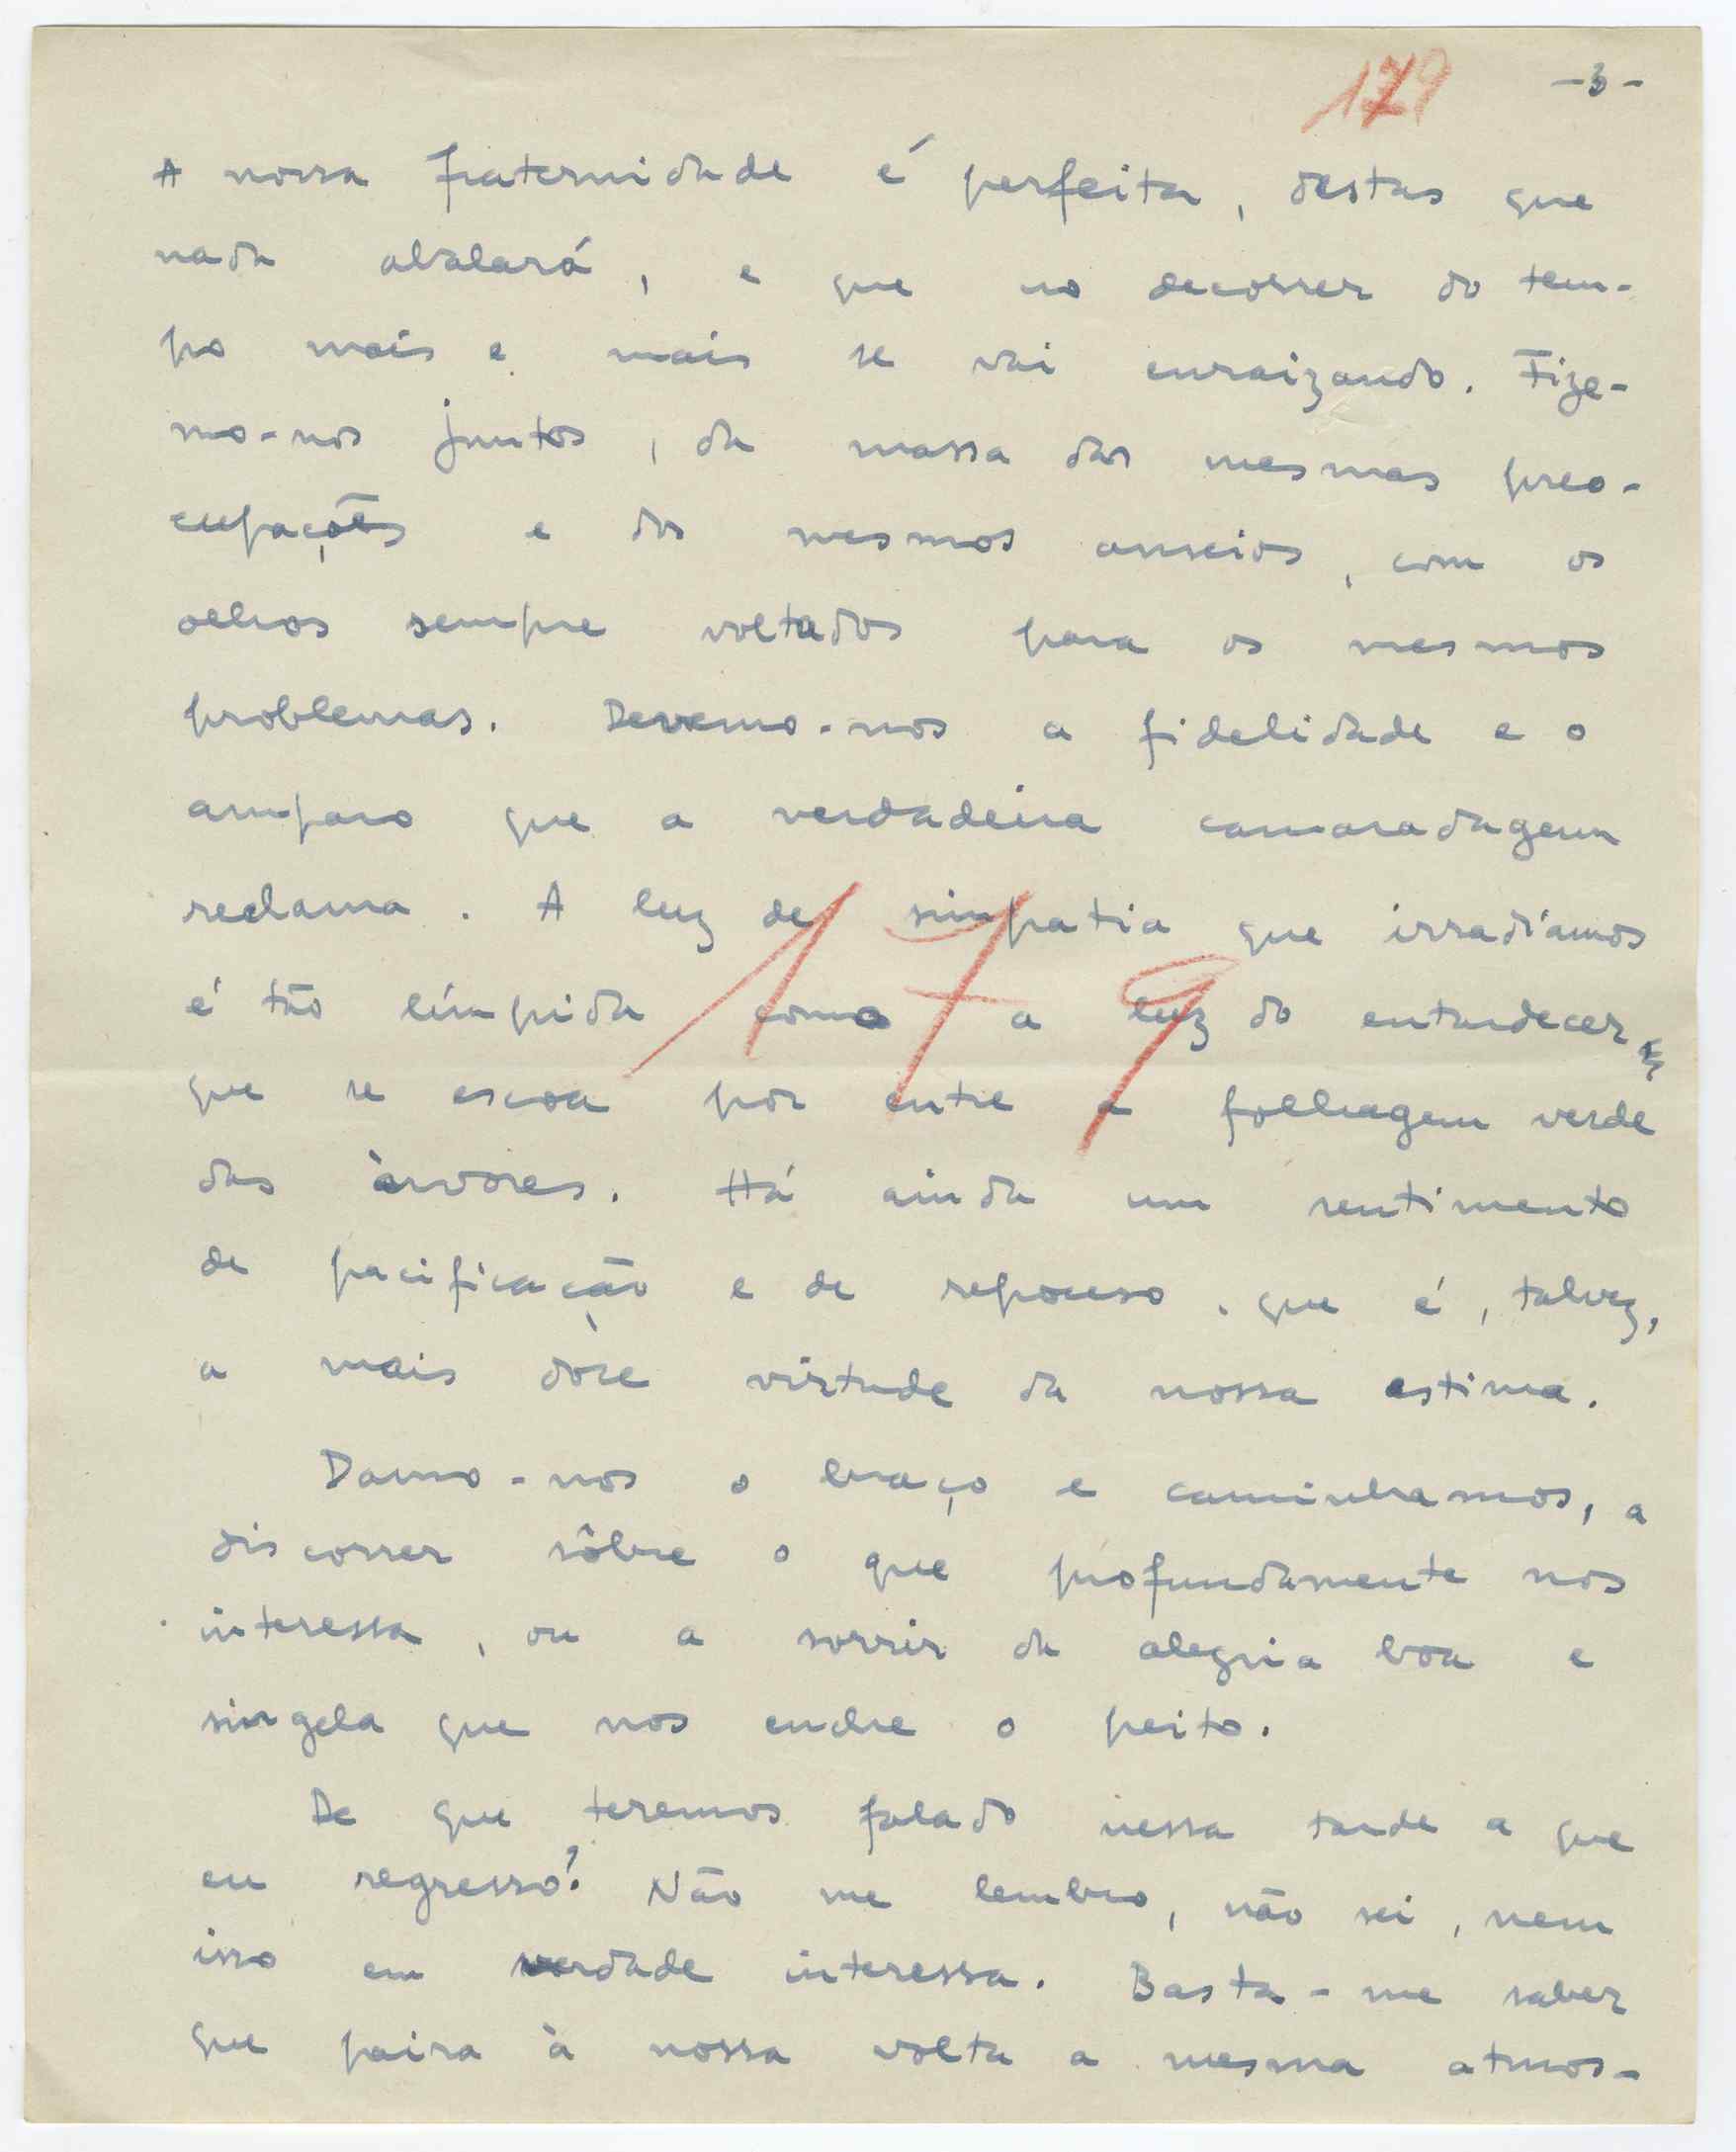 179 -3-
A nossa fraternidade é perfeita, destas que
nada abalará, e que no decorrer do tem-
po mais e mais se vai enraizando. Fize-
mo-nos juntos, da massa das mesmas preo-
cupações e dos mesmos anseios, com os
olhos sempre voltados para os mesmos
problemas. Devemo-nos a fidelidade e o
amparo que a verdadeira camaradagem
reclama. A luz de simpatia que irradiamos
é tão límpida como a luz do entardecer
que se escoa por entre a folhagem verde
das àrvores. Há ainda um sentimento
de pacificação e de repouso, que é, talvez,
a mais dôce virtude da nossa estima.
Damo-nos o braço e caminhamos, a
discorrer sôbre o que profundamente nos
interessa, ou a sorrir da alegria boa e
singela que nos enche o peito.
De que teremos falado nessa tarde a que
eu regresso? Não me lembro, não sei, nem
isso em verdade interessa. Basta-me saber
que paira à nossa volta a mesma atmos-
179